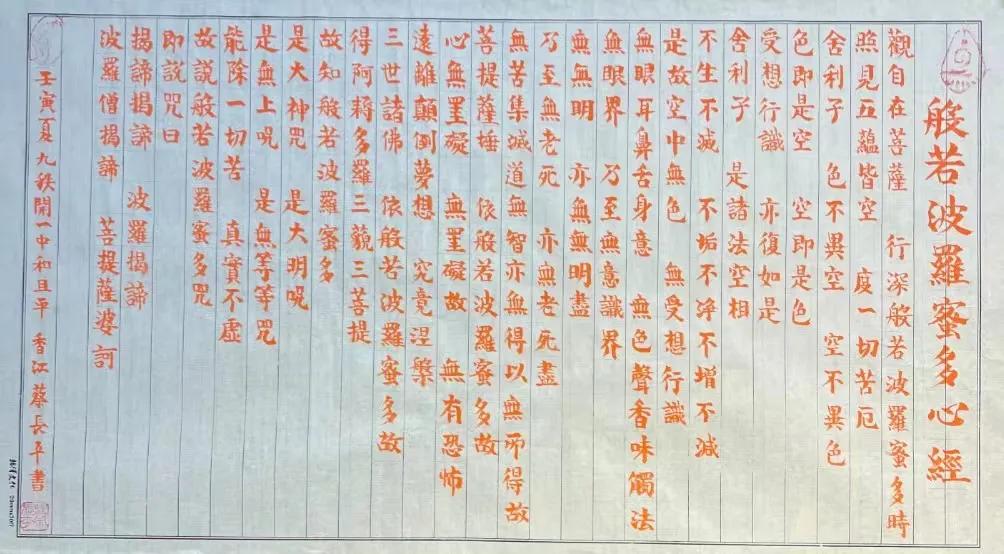 般若波羅蜜多心經
觀自在菩薩 行深般若波羅蜜多時
照見五蘊皆空 度一切苦厄
舍利子 色不異空 空不異色
色即是空 空即是色
受想行識 亦復如是
舍利子 是諸法空相
不生不滅 不垢不淨 不增不減
是故空中無色 無受想行識
無眼耳鼻舌身意 無色聲香味觸法
無眼界 乃至無意識界
無無明 亦無無明盡
乃至無老死 亦無老死盡
無苦集滅道 無智亦無得 以無所得故
菩提薩埵 依般若波羅蜜多故
心無罣礙 無罣礙故 無有恐怖
遠離顛倒夢想 究竟涅槃
三世諸佛 依般若波羅蜜多故
得阿耨多羅三藐三菩提
故知般若波羅蜜多
是大神咒 是大明呪
是無上呪 是無等等咒
能除一切苦 真實不虛
故説般若波羅蜜多咒
即説咒曰
揭諦揭諦 波羅揭諦
波羅僧揭諦 菩提薩婆訶
壬寅夏九秩開一中和且平 香江蔡長平書